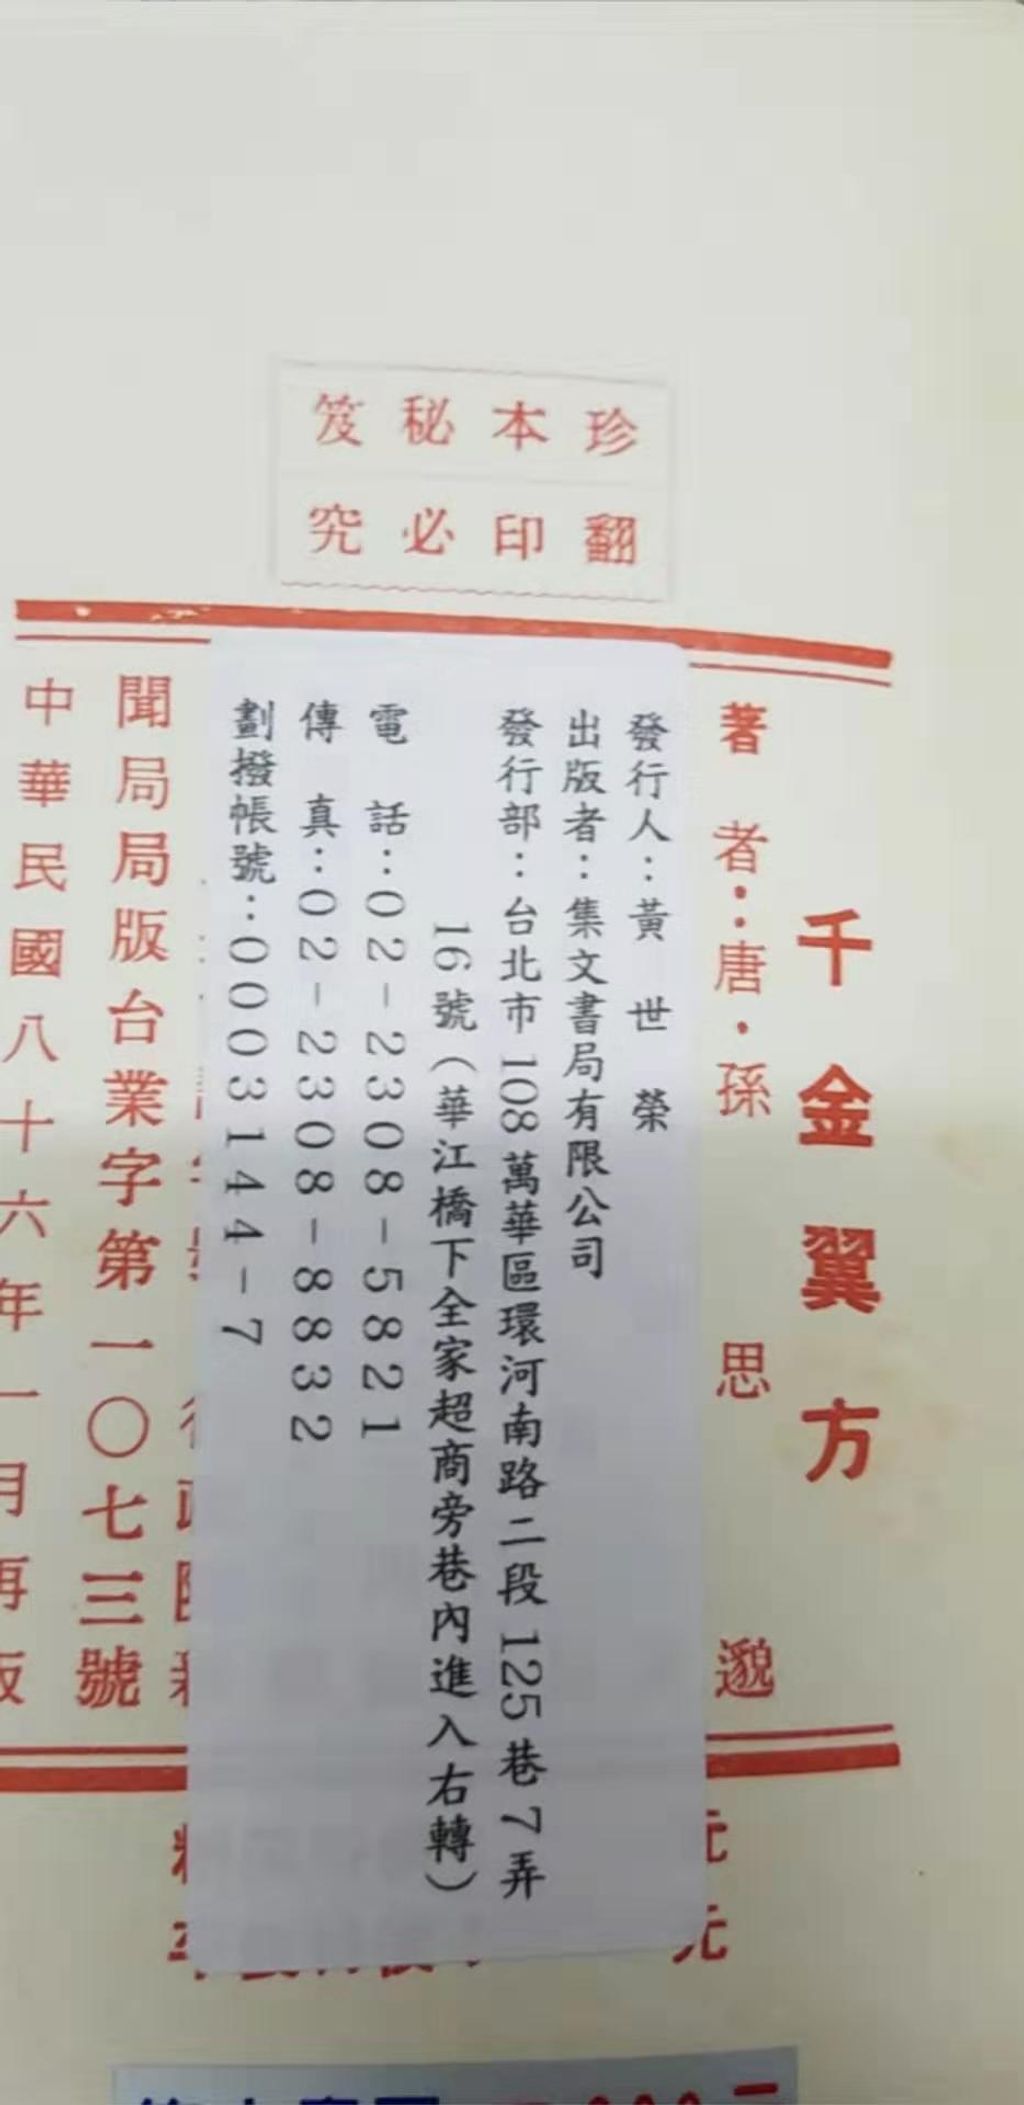 珍本秘笈
翻印必究
千金翼方
著者：唐·孫思邈
發行人：黃世榮
出版者：集文書局有限公司
發行部：台北市108萬華區環河南路二段125巷7弄
16號（華江橋下全家超商旁巷內進入右轉）
電話：02-2308-5821
傳真：02-2308-8832
劃撥帳號：0003144-7
聞局局版台業字第一〇七三號
中華民國八十六年一月再版
元
元